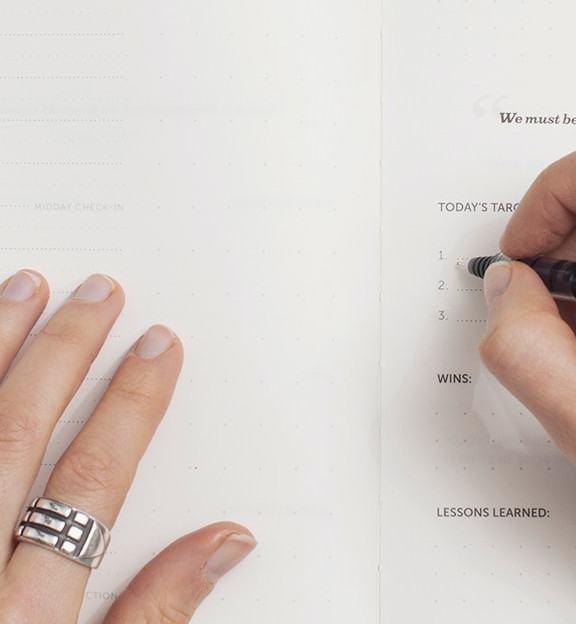 MIDDAY CHECK-IN
CTION
“We must be
TODAY'S TARG
1.
2.
3.
WINS:
LESSONS LEARNED: